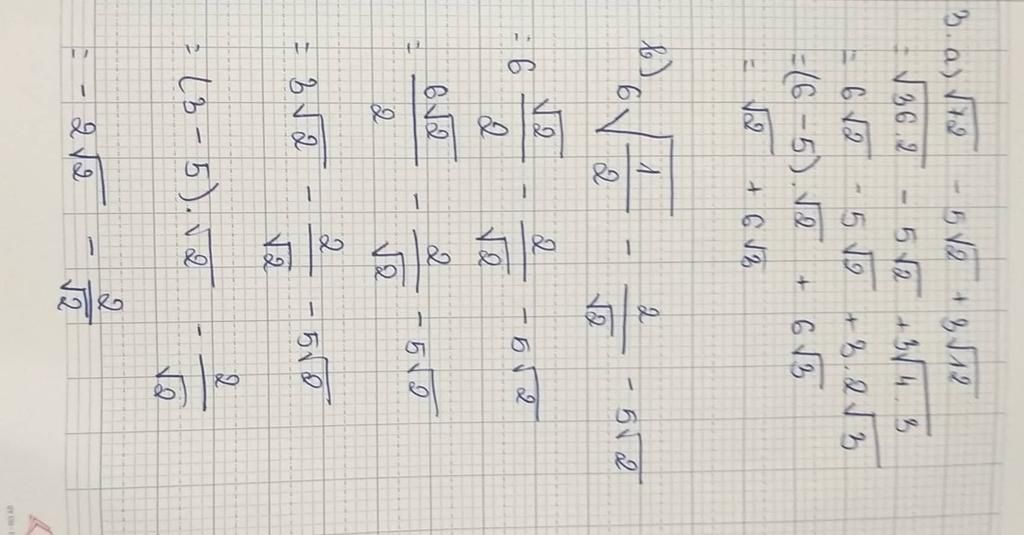 3. a) √72 - 5√2 + 3√12
= √36.2 - 5√2 + 3√4.3
= 6√2 - 5√2 + 3.2√3
= (6 - 5).√2 + 6√3
= √2 + 6√3
b) 6√(1/2) - 2/√2 - 5√2
= 6 √2/2 - 2/√2 - 5√2
= 6√2/2 - 2/√2 - 5√2
= 3√2 - 2/√2 - 5√2
= (3 - 5).√2 - 2/√2
= - 2√2 - 2/√2